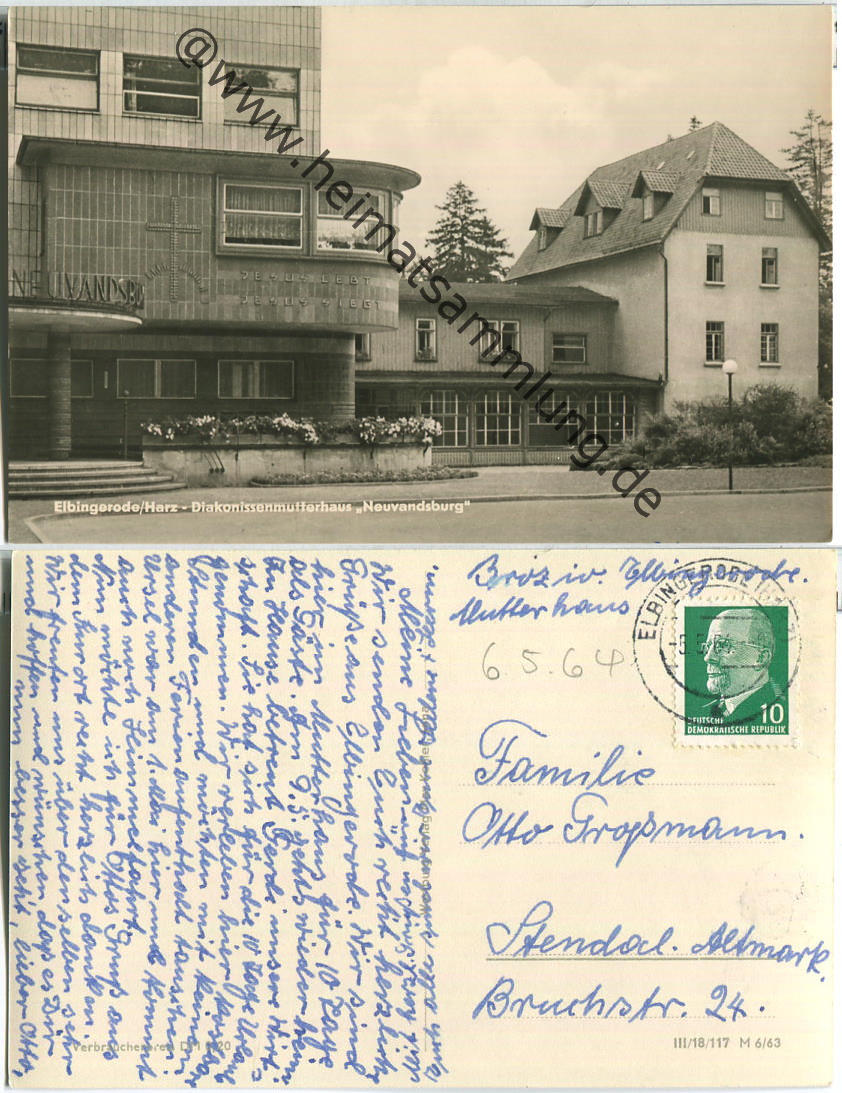 @www.heimatsammlung.de
NEUVANDSBU
JESUS LEBT
JESUS SIEGT
Elbingerode/Harz - Diakonissenmutterhaus „Neuvandsburg"
Meine Lieben
Wir senden Euch recht herzliche
Grüße aus Elbingerode. Wir sind
hier im Mutterhaus für 10 Tage
als Gäste. Am 9.5. gehts wieder heim.
Zu Hause betreut Gerda unser Wirt-
schaft. Sie hat sich für die 10 Tage Urlaub
genommen. Wir erleben hier kostbare
Stunden und möchten mit keinem
anderen Ferienaufenthalt tauschen.
Ursel war am 1. Mai hier und kommt
auch noch Himmelfahrt.
Nun möchte ich für Ottos Gruß aus
dem Kurort recht herzlich danken.
Wir freuten uns über denselben sehr
und hoffen und wünschen, daß es Dir
nun besser geht, lieber Otto,
Verbraucherpreis DM 0,20
Broz w. Elbingerode.
Mutterhaus
6.5.64
ELBINGERODE
DEUTSCHE
DEMOKRATISCHE REPUBLIK
10
Familie
Otto Großmann.
Stendal. Altmark.
Bruchstr. 24.
III/18/117 M 6/63